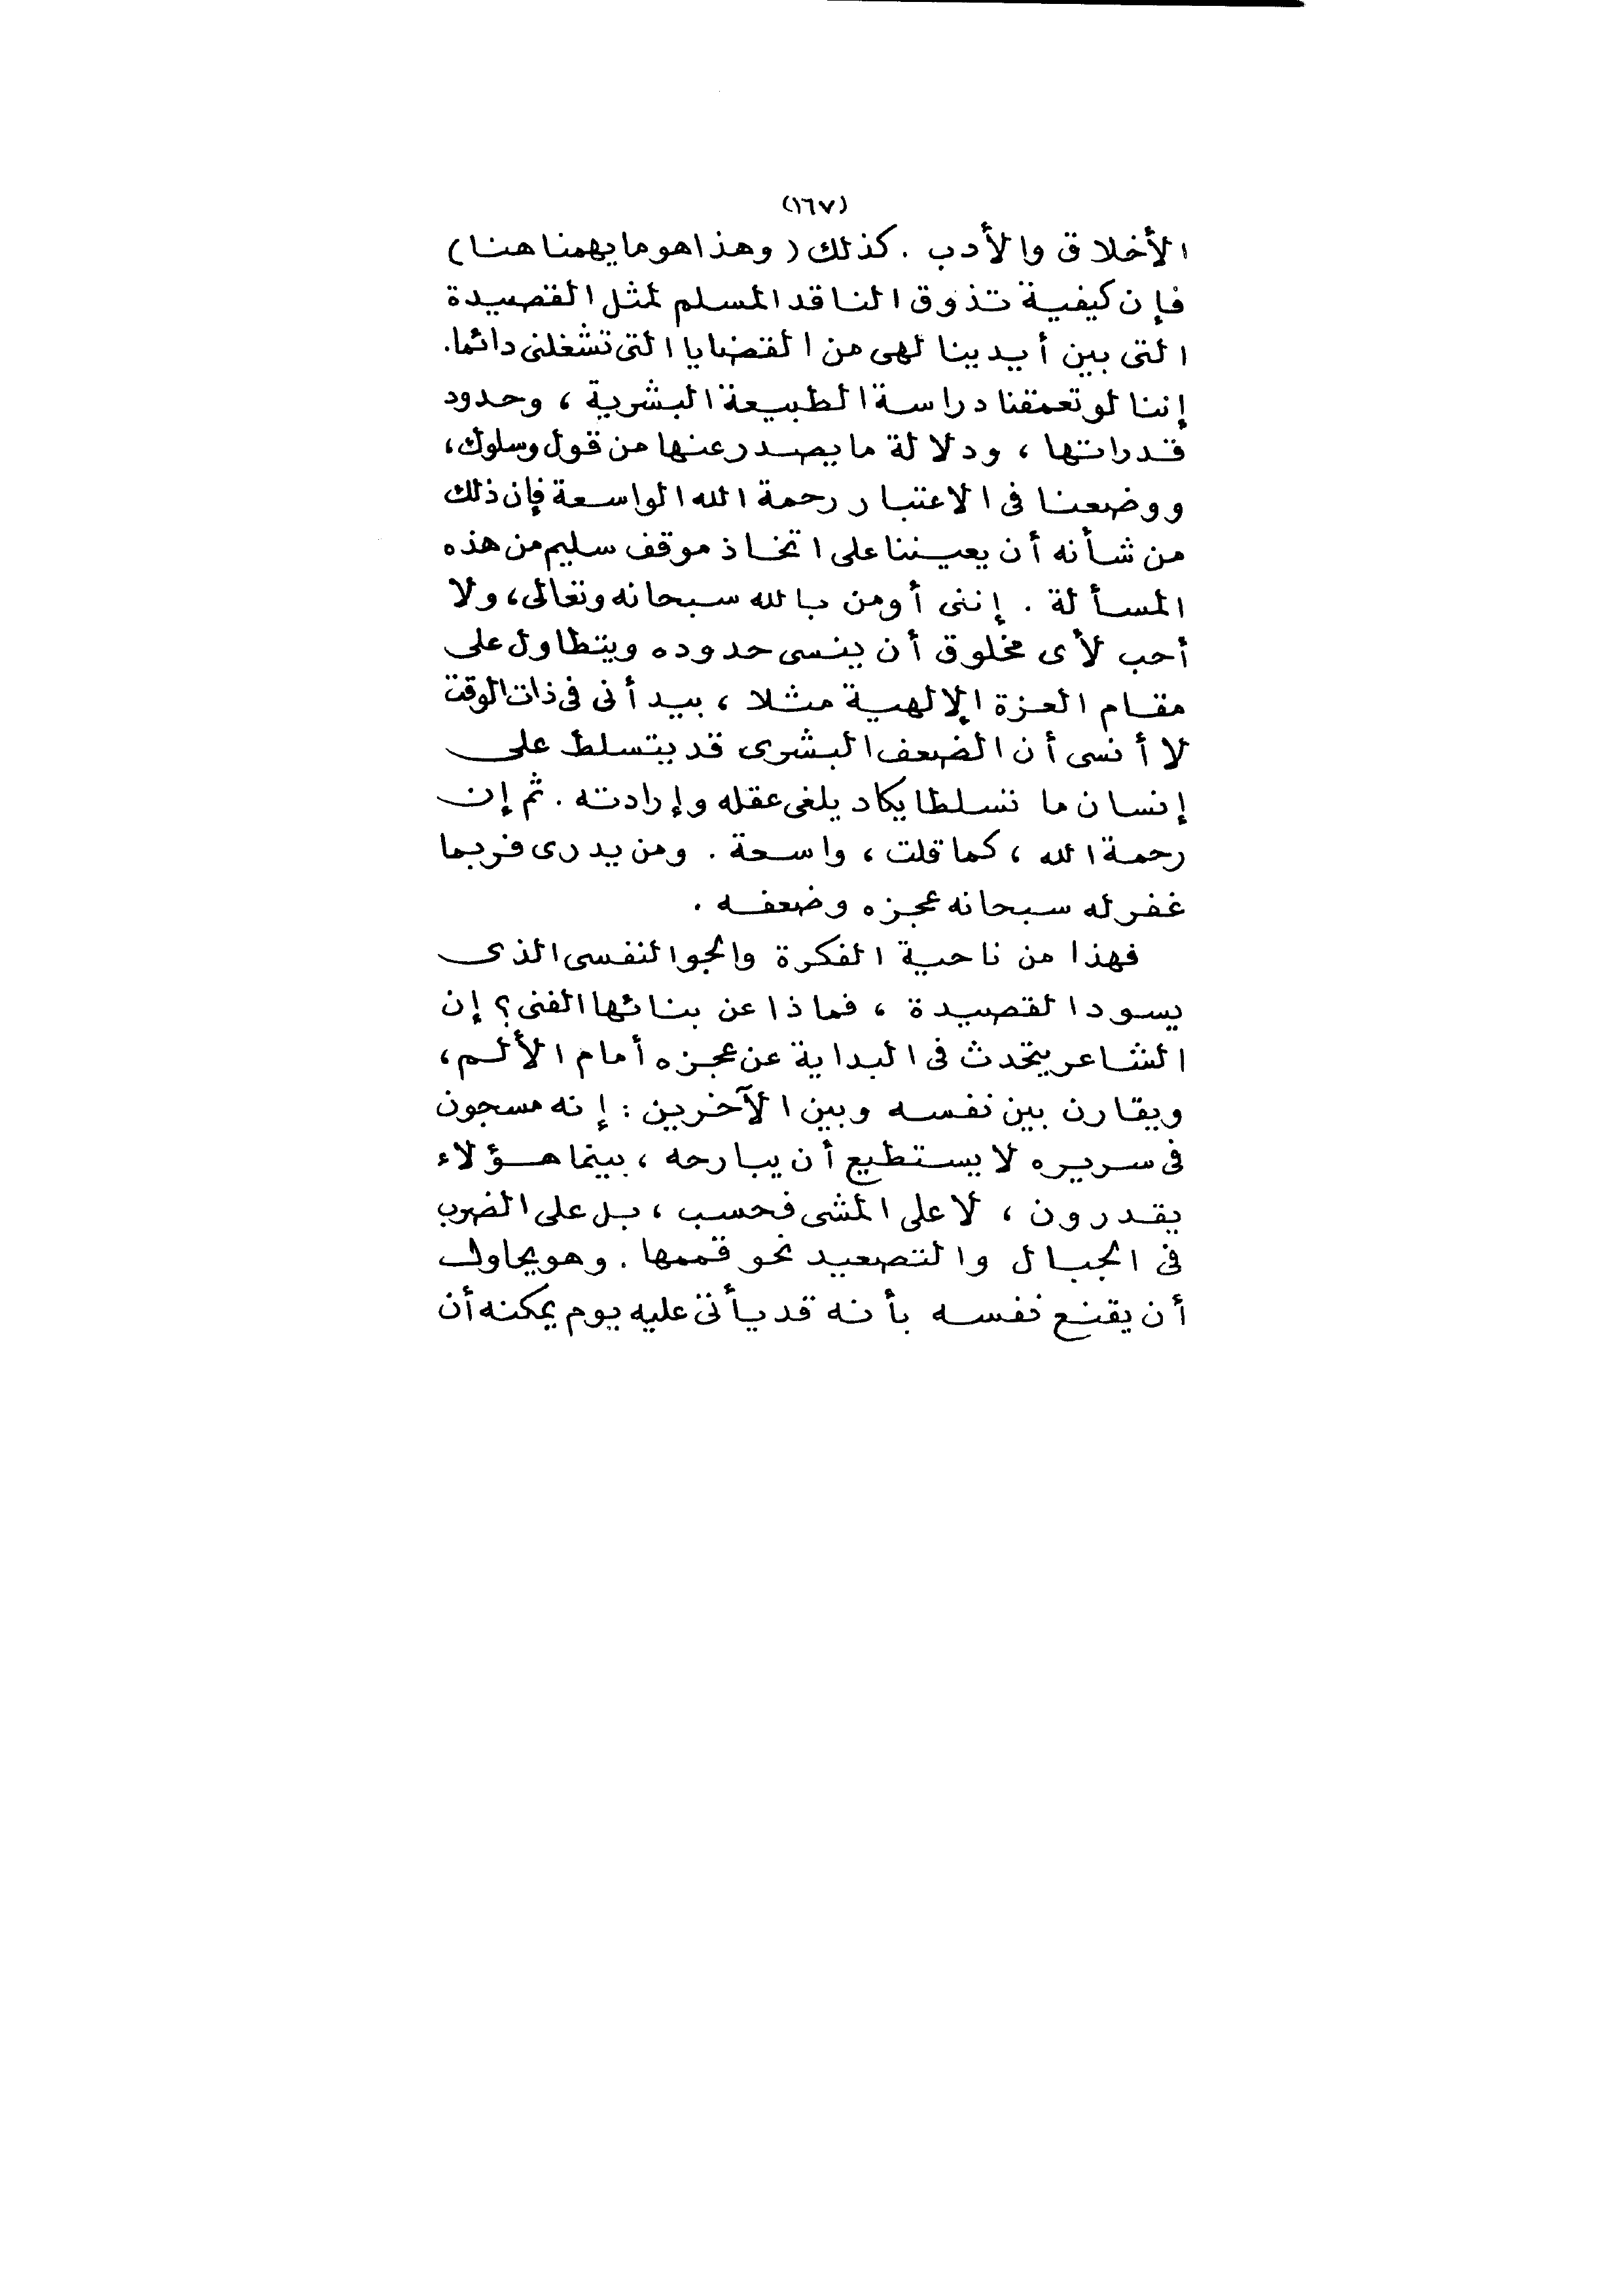 (١٦٧)
الأخلاق والأدب . كذلك ( وهذا هو ما يهمنا هنا )
فإن كيفية تذوق الناقد المسلم لمثل القصيدة
التى بين أيدينا لهى من القضايا التى تشغلنى دائما.
إننا لو تعمقنا دراسة الطبيعة البشرية ، وحدود
قدراتها ، ودلالة ما يصدر عنها من قول وسلوك،
ووضعنا فى الاعتبار رحمة الله الواسعة فإن ذلك
من شأنه أن يعيننا على اتخاذ موقف سليم من هذه
المسألة . إننى أومن بالله سبحانه وتعالى، ولا
أحب لأى مخلوق أن ينسى حدوده ويتطاول على
مقام العزة الإلهية مثلا ، بيد أنى فى ذات الوقت
لا أنسى أن الضعف البشرى قد يتسلط على
إنسان ما تسلطا يكاد يلغى عقله وإرادته . ثم إن
رحمة الله ، كما قلت ، واسعة . ومن يدرى فربما
غفر له سبحانه عجزه وضعفه .
فهذا من ناحية الفكرة والجو النفسى الذى
يسود القصيدة ، فماذا عن بنائها الفنى ؟ إن
الشاعر يتحدث فى البداية عن عجزه أمام الألم ،
ويقارن بين نفسه وبين الآخرين : إنه مسجون
فى سريره لا يستطيع أن يبارحه ، بينما هؤلاء
يقدرون ، لا على المشى فحسب ، بل على الضرب
فى الجبال والتصعيد نحو قممها . وهو يحاول
أن يقنع نفسه بأنه قد يأتى عليه يوم يمكنه أن